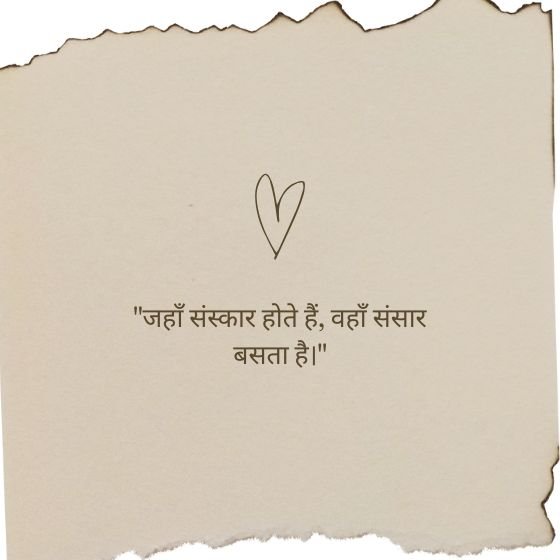 "जहाँ संस्कार होते हैं, वहाँ संसार
बसता है।"